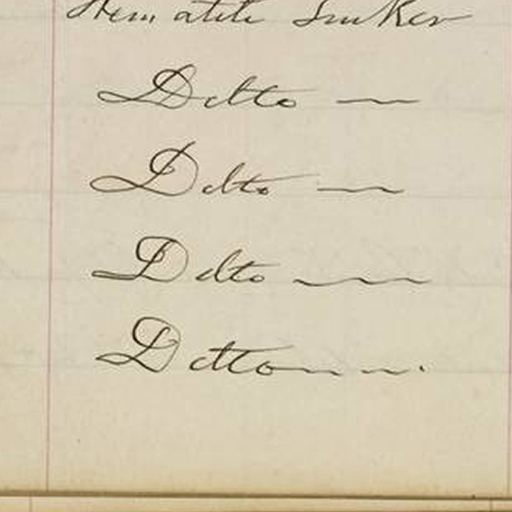 Hematite Sinker
Ditto —
Ditto —
Ditto —
Ditto — — .